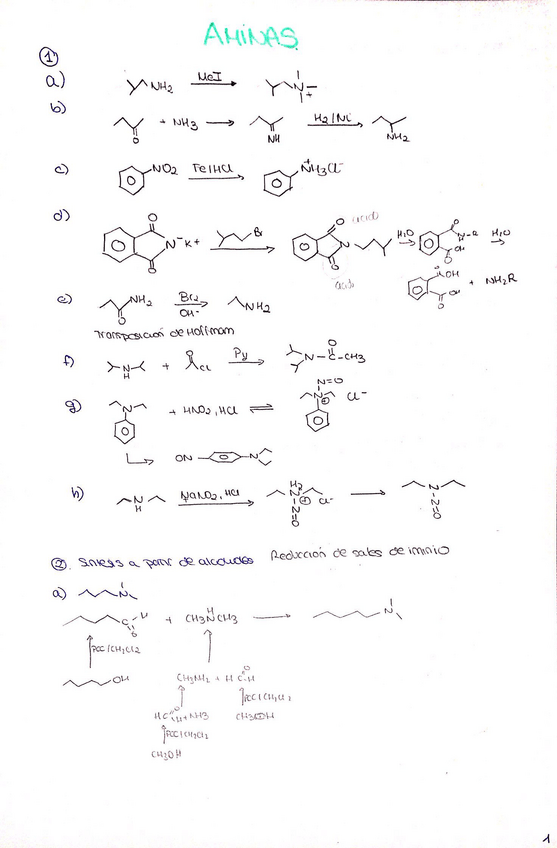 AMINAS
1)
a) NH2 MeI N +
b) O + NH3 NH H2/Ni NH2
c) NO2 Fe/HCl +NH3Cl-
d) O N- K+ O Br O acido N O acido H2O O N-R H OH O H2O
O OH OH O + NH2R
e) NH2 O Br2 OH- NH2
Transposición de Hoffmann
f) N H + O Cl Py N-C-CH3 O
g) N + HNO2, HCl N=O N + Cl-
ON N
h) N H NaNO2, HCl H2 N + Cl- N=O N N=O
2. Síntesis a partir de alcoholes Reducción de sales de iminio
a) N
C H O + CH3NCH3 H N
PCC/CH2Cl2
OH CH3NH2 + H C H O
HC H O + NH3 PCC/CH2Cl2
PCC/CH2Cl2 CH3OH
CH3OH
1